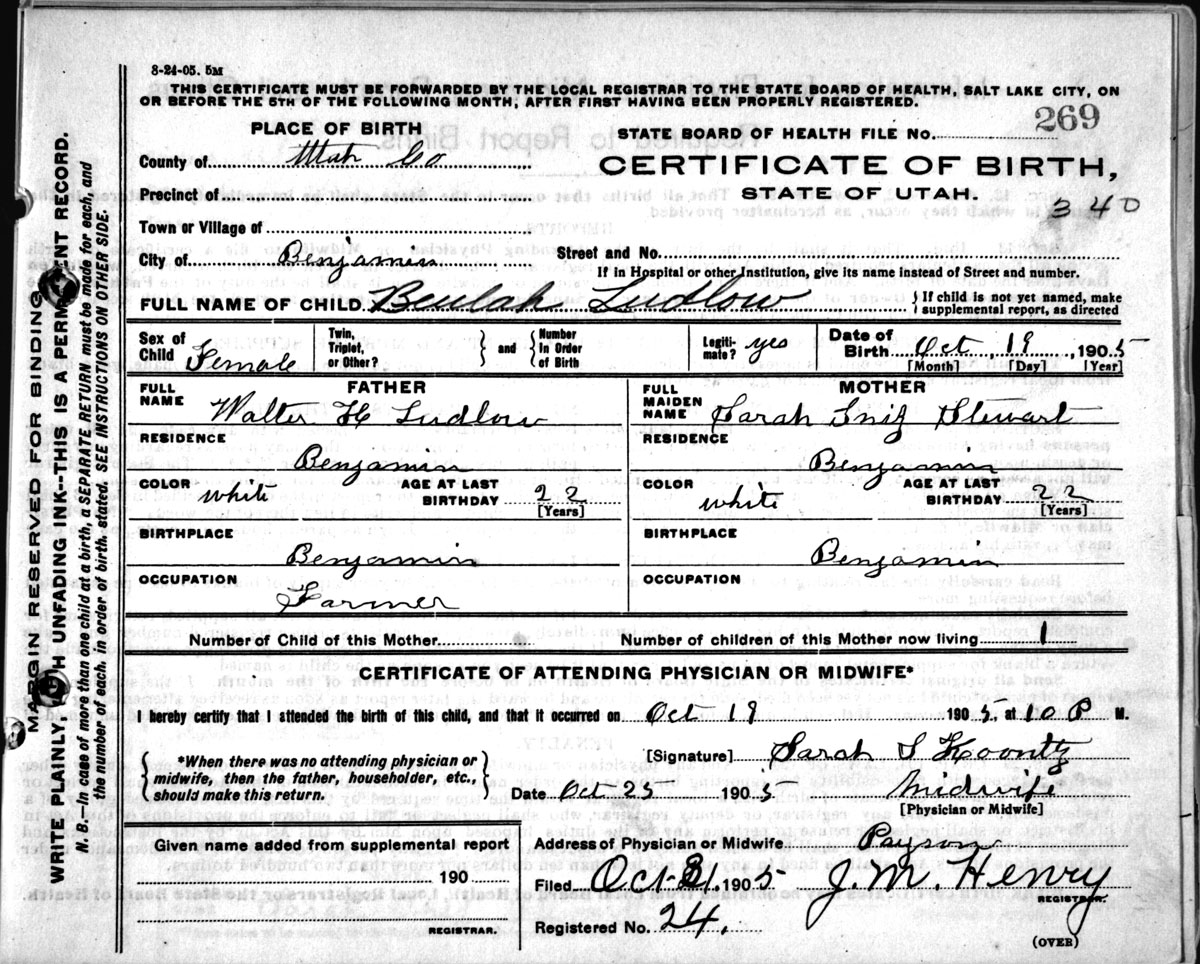 8-24-05. 5M
THIS CERTIFICATE MUST BE FORWARDED BY THE LOCAL REGISTRAR TO THE STATE BOARD OF HEALTH, SALT LAKE CITY, ON
OR BEFORE THE 5TH OF THE FOLLOWING MONTH, AFTER FIRST HAVING BEEN PROPERLY REGISTERED.
PLACE OF BIRTH
STATE BOARD OF HEALTH FILE NO. 269
County of Utah Co
CERTIFICATE OF BIRTH,
STATE OF UTAH.
340
Precinct of
Town or Village of
City of Benjamin Street and No.
If in Hospital or other Institution, give its name instead of Street and number.
FULL NAME OF CHILD Beulah Ludlow } If child is not yet named, make supplemental report, as directed
Sex of Child Female Twin, Triplet, or Other? } and { Number In Order of Birth Legiti-mate? yes Date of Birth Oct, 19, 1905
[Month] [Day] [Year]
FATHER
FULL NAME Walter H Ludlow
RESIDENCE Benjamin
COLOR white AGE AT LAST BIRTHDAY 22 [Years]
BIRTHPLACE Benjamin
OCCUPATION Farmer
MOTHER
FULL MAIDEN NAME Sarah Stewart
RESIDENCE Benjamin
COLOR white AGE AT LAST BIRTHDAY 22 [Years]
BIRTHPLACE Benjamin
OCCUPATION
Number of Child of this Mother Number of children of this Mother now living 1
CERTIFICATE OF ATTENDING PHYSICIAN OR MIDWIFE*
I hereby certify that I attended the birth of this child, and that it occurred on Oct 19 1905, at 10 P M.
{ *When there was no attending physician or midwife, then the father, householder, etc., should make this return. }
[Signature] Sarah S Koontz
Date Oct 25 1905 Midwife
[Physician or Midwife]
Given name added from supplemental report
190
REGISTRAR.
Address of Physician or Midwife Payson
Filed Oct 31, 1905 J. M. Henry
REGISTRAR.
Registered No. 24.
(OVER)
MARGIN RESERVED FOR BINDING
WRITE PLAINLY, WITH UNFADING INK--THIS IS A PERMANENT RECORD.
N. B.--In case of more than one child at a birth, a SEPARATE RETURN must be made for each, and
the number of each, in order of birth, stated. SEE INSTRUCTIONS ON OTHER SIDE.